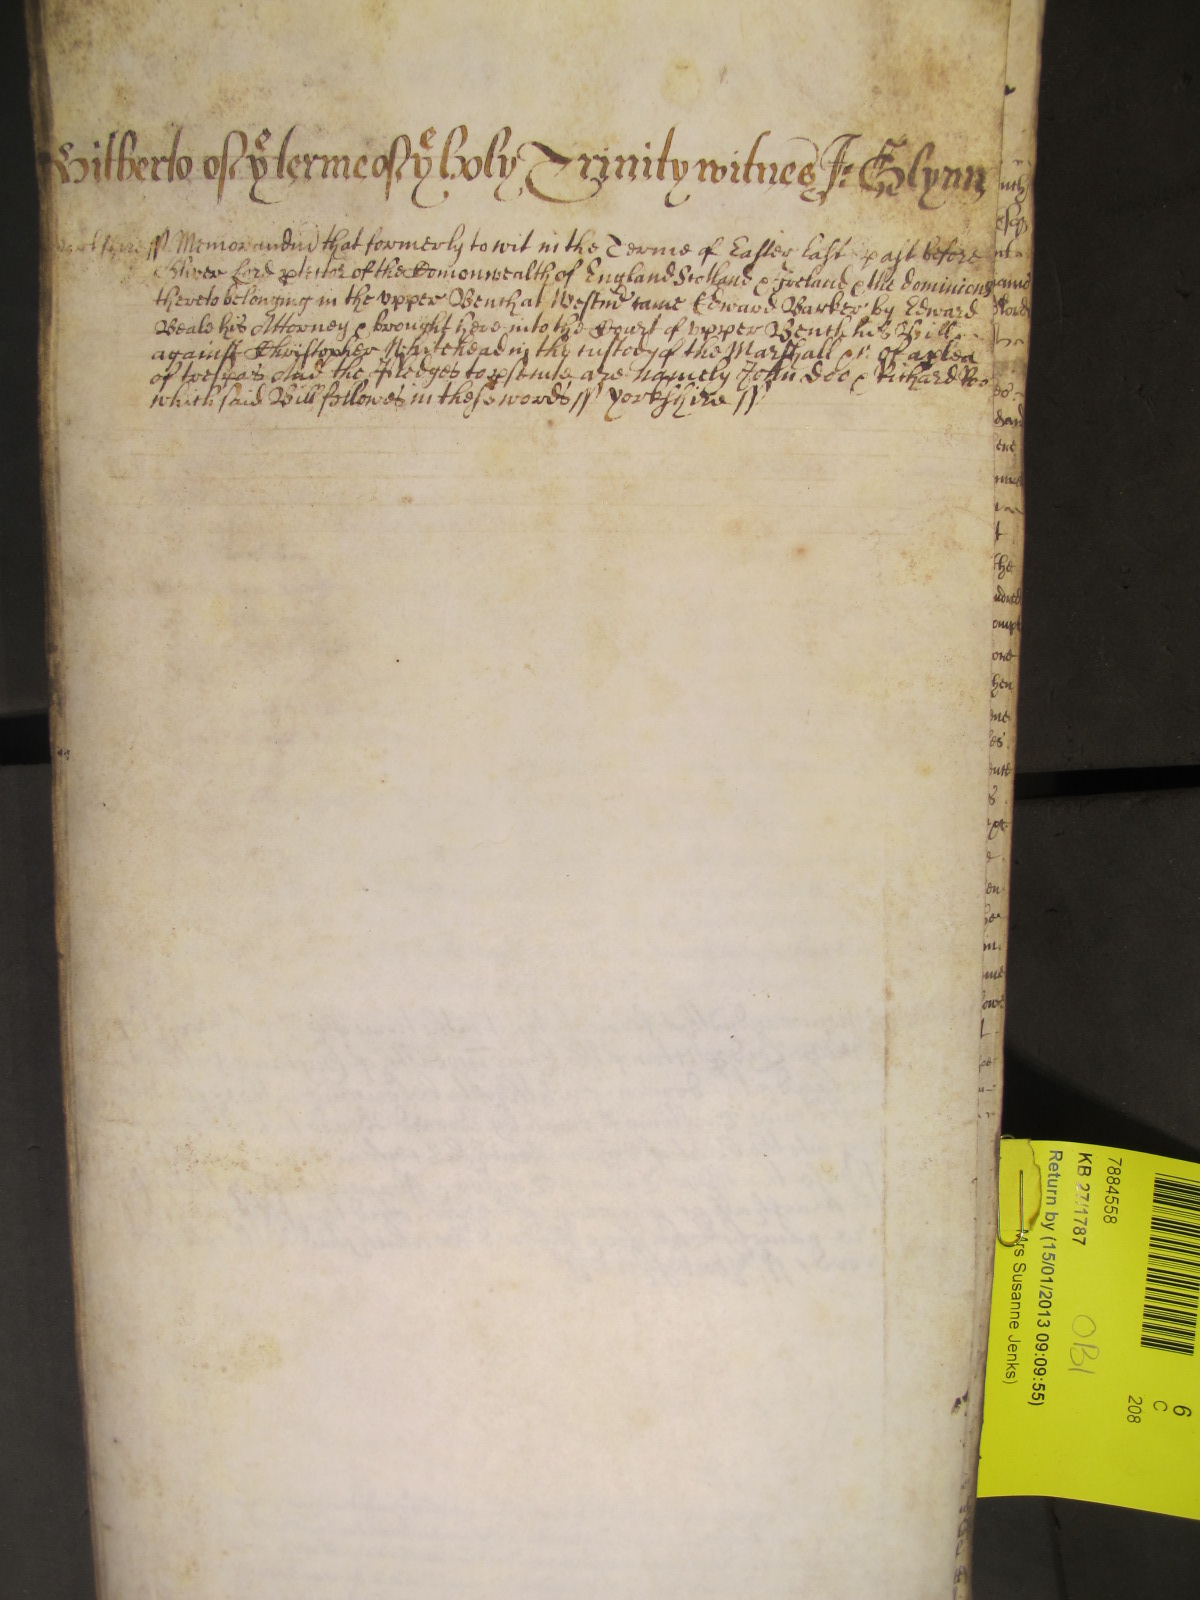 Gilberto of yͤ terme of yͤ holy Trinity witnes J: Glynn
Yorkshire // Memorandum that formerly to wit in the Terme of Easter last past before
Oliver Lord ptector of the Comonwealth of England Scotland & Ireland & the dominions
thereto belonging in the upper Bench at Westmr came Edward Barker by Edward
Beale his Attorney & brought here into the Court of upper Bench his Bill
against Christopher Whitehead in the custody of the Marshall &c of a plea
of trespas And the Pledges to psecute are namely John Doe & Richard Roo
which said Bill followes in these words // Yorkshire //
the
one
hen
me
7884558
KB 27/1787
Return by (15/01/2013 09:09:55)
Mrs Susanne Jenks)
OBI
6
C
208